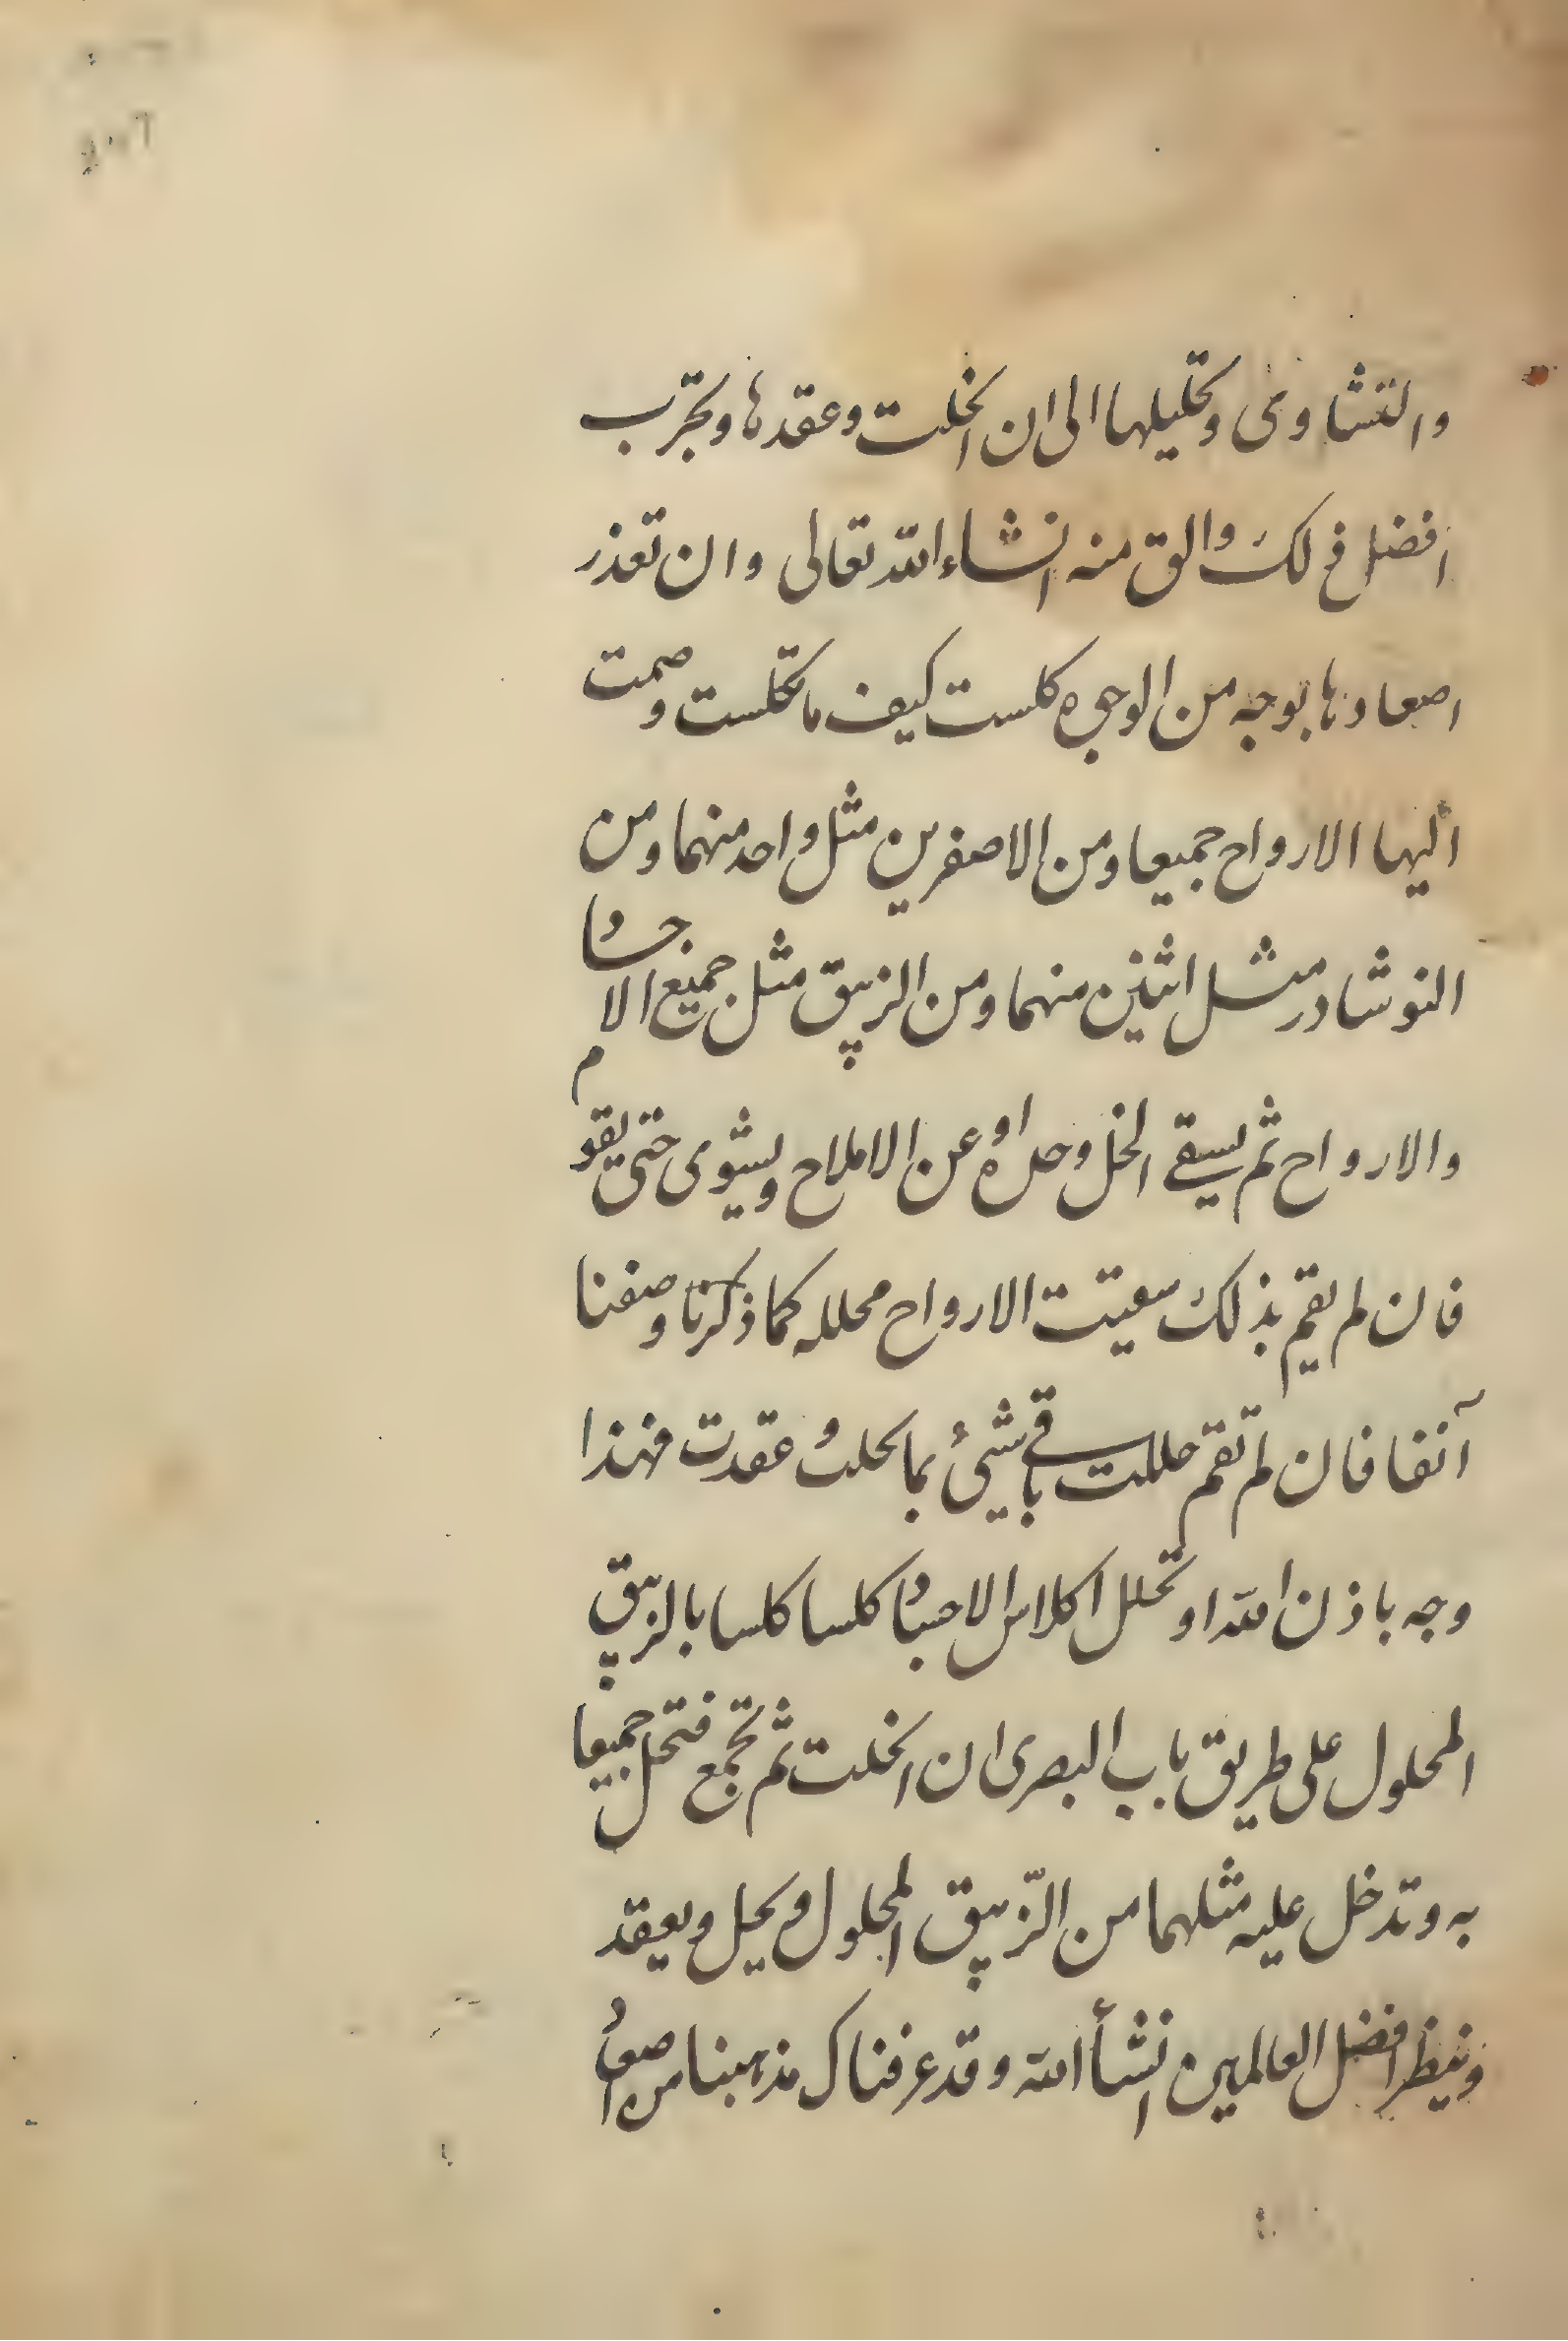 والتشاوى وتحليلها الى ان انحلت وعقدها وتجرب
افضل فح لك والق منه انشاء الله تعالى وان تعذر
اصعادها بوجه من الوجوه كلست كيف ما تكلست وصمت
اليها الارواح جميعا ومن الاصفرين مثل واحد منهما ومن
النوشادر مثل اثنين منهما ومن الزيبق مثل جميع الاجساد
والارواح ثم يسقى الخل وحده او عن الاملاح ويشوى حتى يقوم
فان لم يقم بذلك سقيت الارواح محلله كما ذكرنا وصفنا
آنفا فان لم تقم حللت باقى شيئ بما تحلت وعقدت فهذا
وجه باذن الله او تحلل اكلاس الاجساد كلسا كلسا بالزيبق
المحلول على طريق باب البصرى ان انحلت ثم تجمع فتحل جميعا
به وتدخل عليه مثلهما من الزّيبق المحلول ويحل ويعقد
وينظر افضل العالمين انشأ الله وقد عرفناك مذهبنا من اصعاد